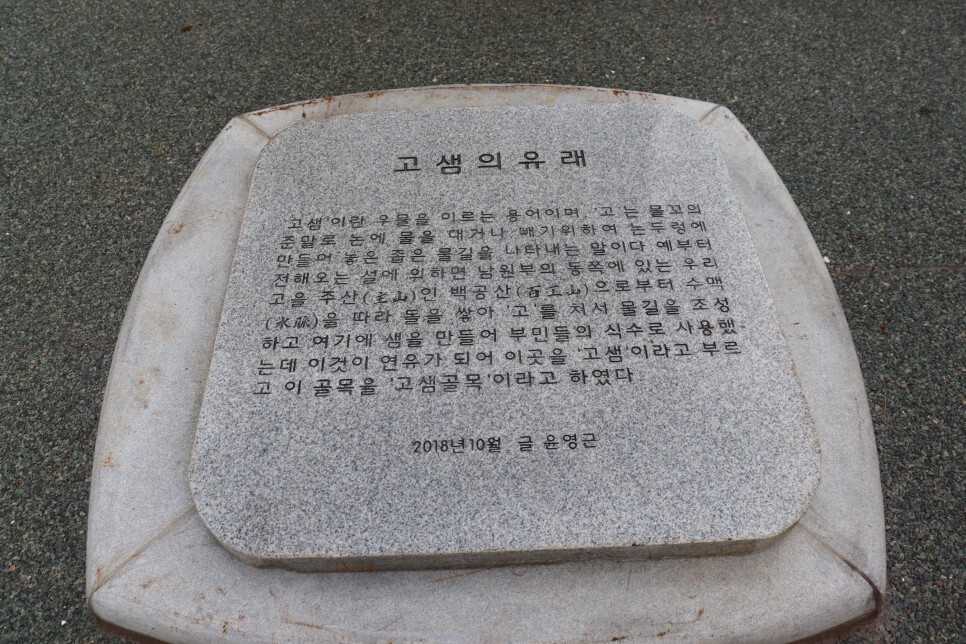 고샘의유래
고샘'이란 우물을 이르는 용어이며, '고'는 물꼬의
준말로 논에 물을 대거나 빼기위하여 논두렁에
만들어 놓은 좁은 물길을 나타내는 말이다 예부터
전해오는 설에 의하면 남원부의 동쪽에 있는 우리
고을 주산(主山)인 백공산(百工山)으로부터 수맥
(水脈)을 따라 돌을 쌓아 '고'를 쳐서 물길을 조성
하고 여기에 샘을 만들어 부민들의 식수로 사용했
는데 이것이 연유가 되어 이곳을 '고샘'이라고 부르
고 이 골목을 '고샘골목'이라고 하였다
2018년10월 글 윤영근